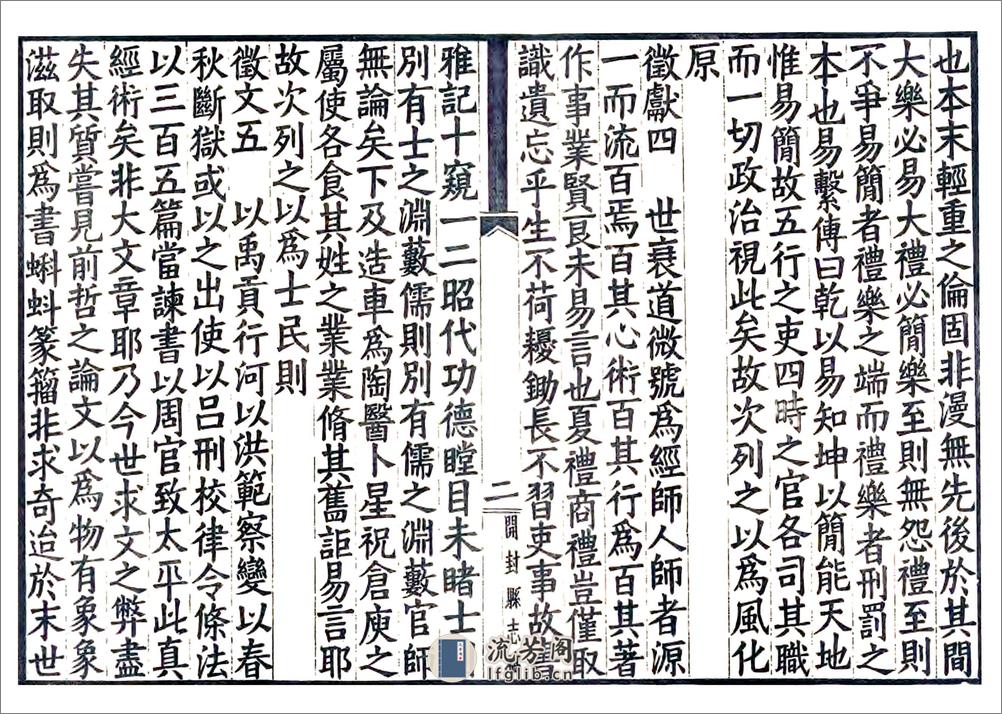 也本末輕重之倫固非漫無先後於其間
大樂必易大禮必簡樂至則無怨禮至則
不爭易簡者禮樂之端而禮樂者刑罰之
本也易繫傳曰乾以易知坤以簡能天地
惟易簡故五行之吏四時之官各司其職
而一切政治視此矣故次列之以為風化
原
徵獻四　世衰道微號為經師人師者源
一而流百焉百其心術百其行為百其著
作事業賢艮未易言也夏禮商禮豈僅取
識遺忘乎生不荷耰鋤長不習吏事故
二
開封縣志
雅記十窺一二昭代功德瞠目未睹士
別有士之淵藪儒則別有儒之淵藪官師
無論矣下及造車為陶醫卜星祝倉庾之
屬使各食其姓之業業脩其舊詎易言耶
故次列之以為士民則
徵文五　以禹貢行河以洪範察變以春
秋斷獄或以之出使以呂刑校律令條法
以三百五篇當諫書以周官致太平此真
經術矣非大文章耶乃今世求文之弊盡
失其質嘗見前哲之論文以為物有象象
滋取則為書蝌蚪篆籀非求奇迨於末世
流芳阁
lfglib.cn